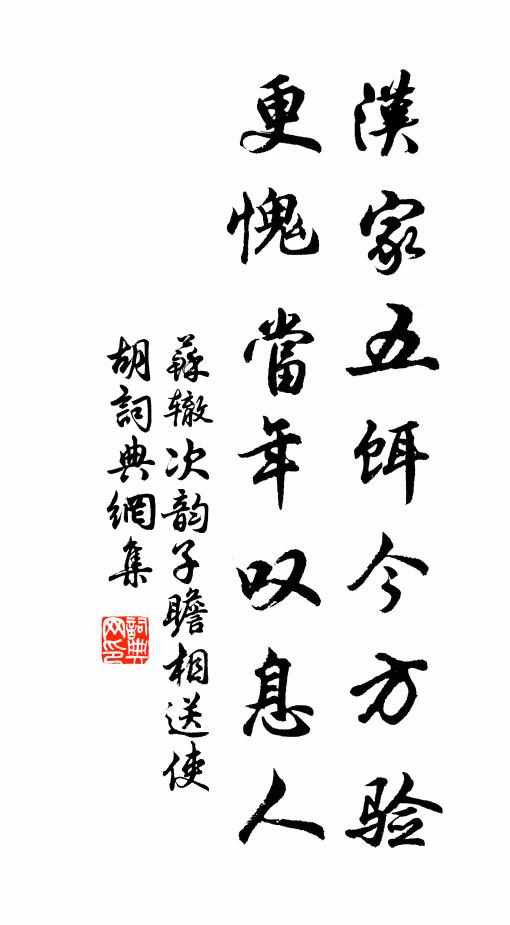 漢家五餌今方验
更愧當年叹息人
蘇辙次韵子瞻相送使
胡詞典網集
詞典网印